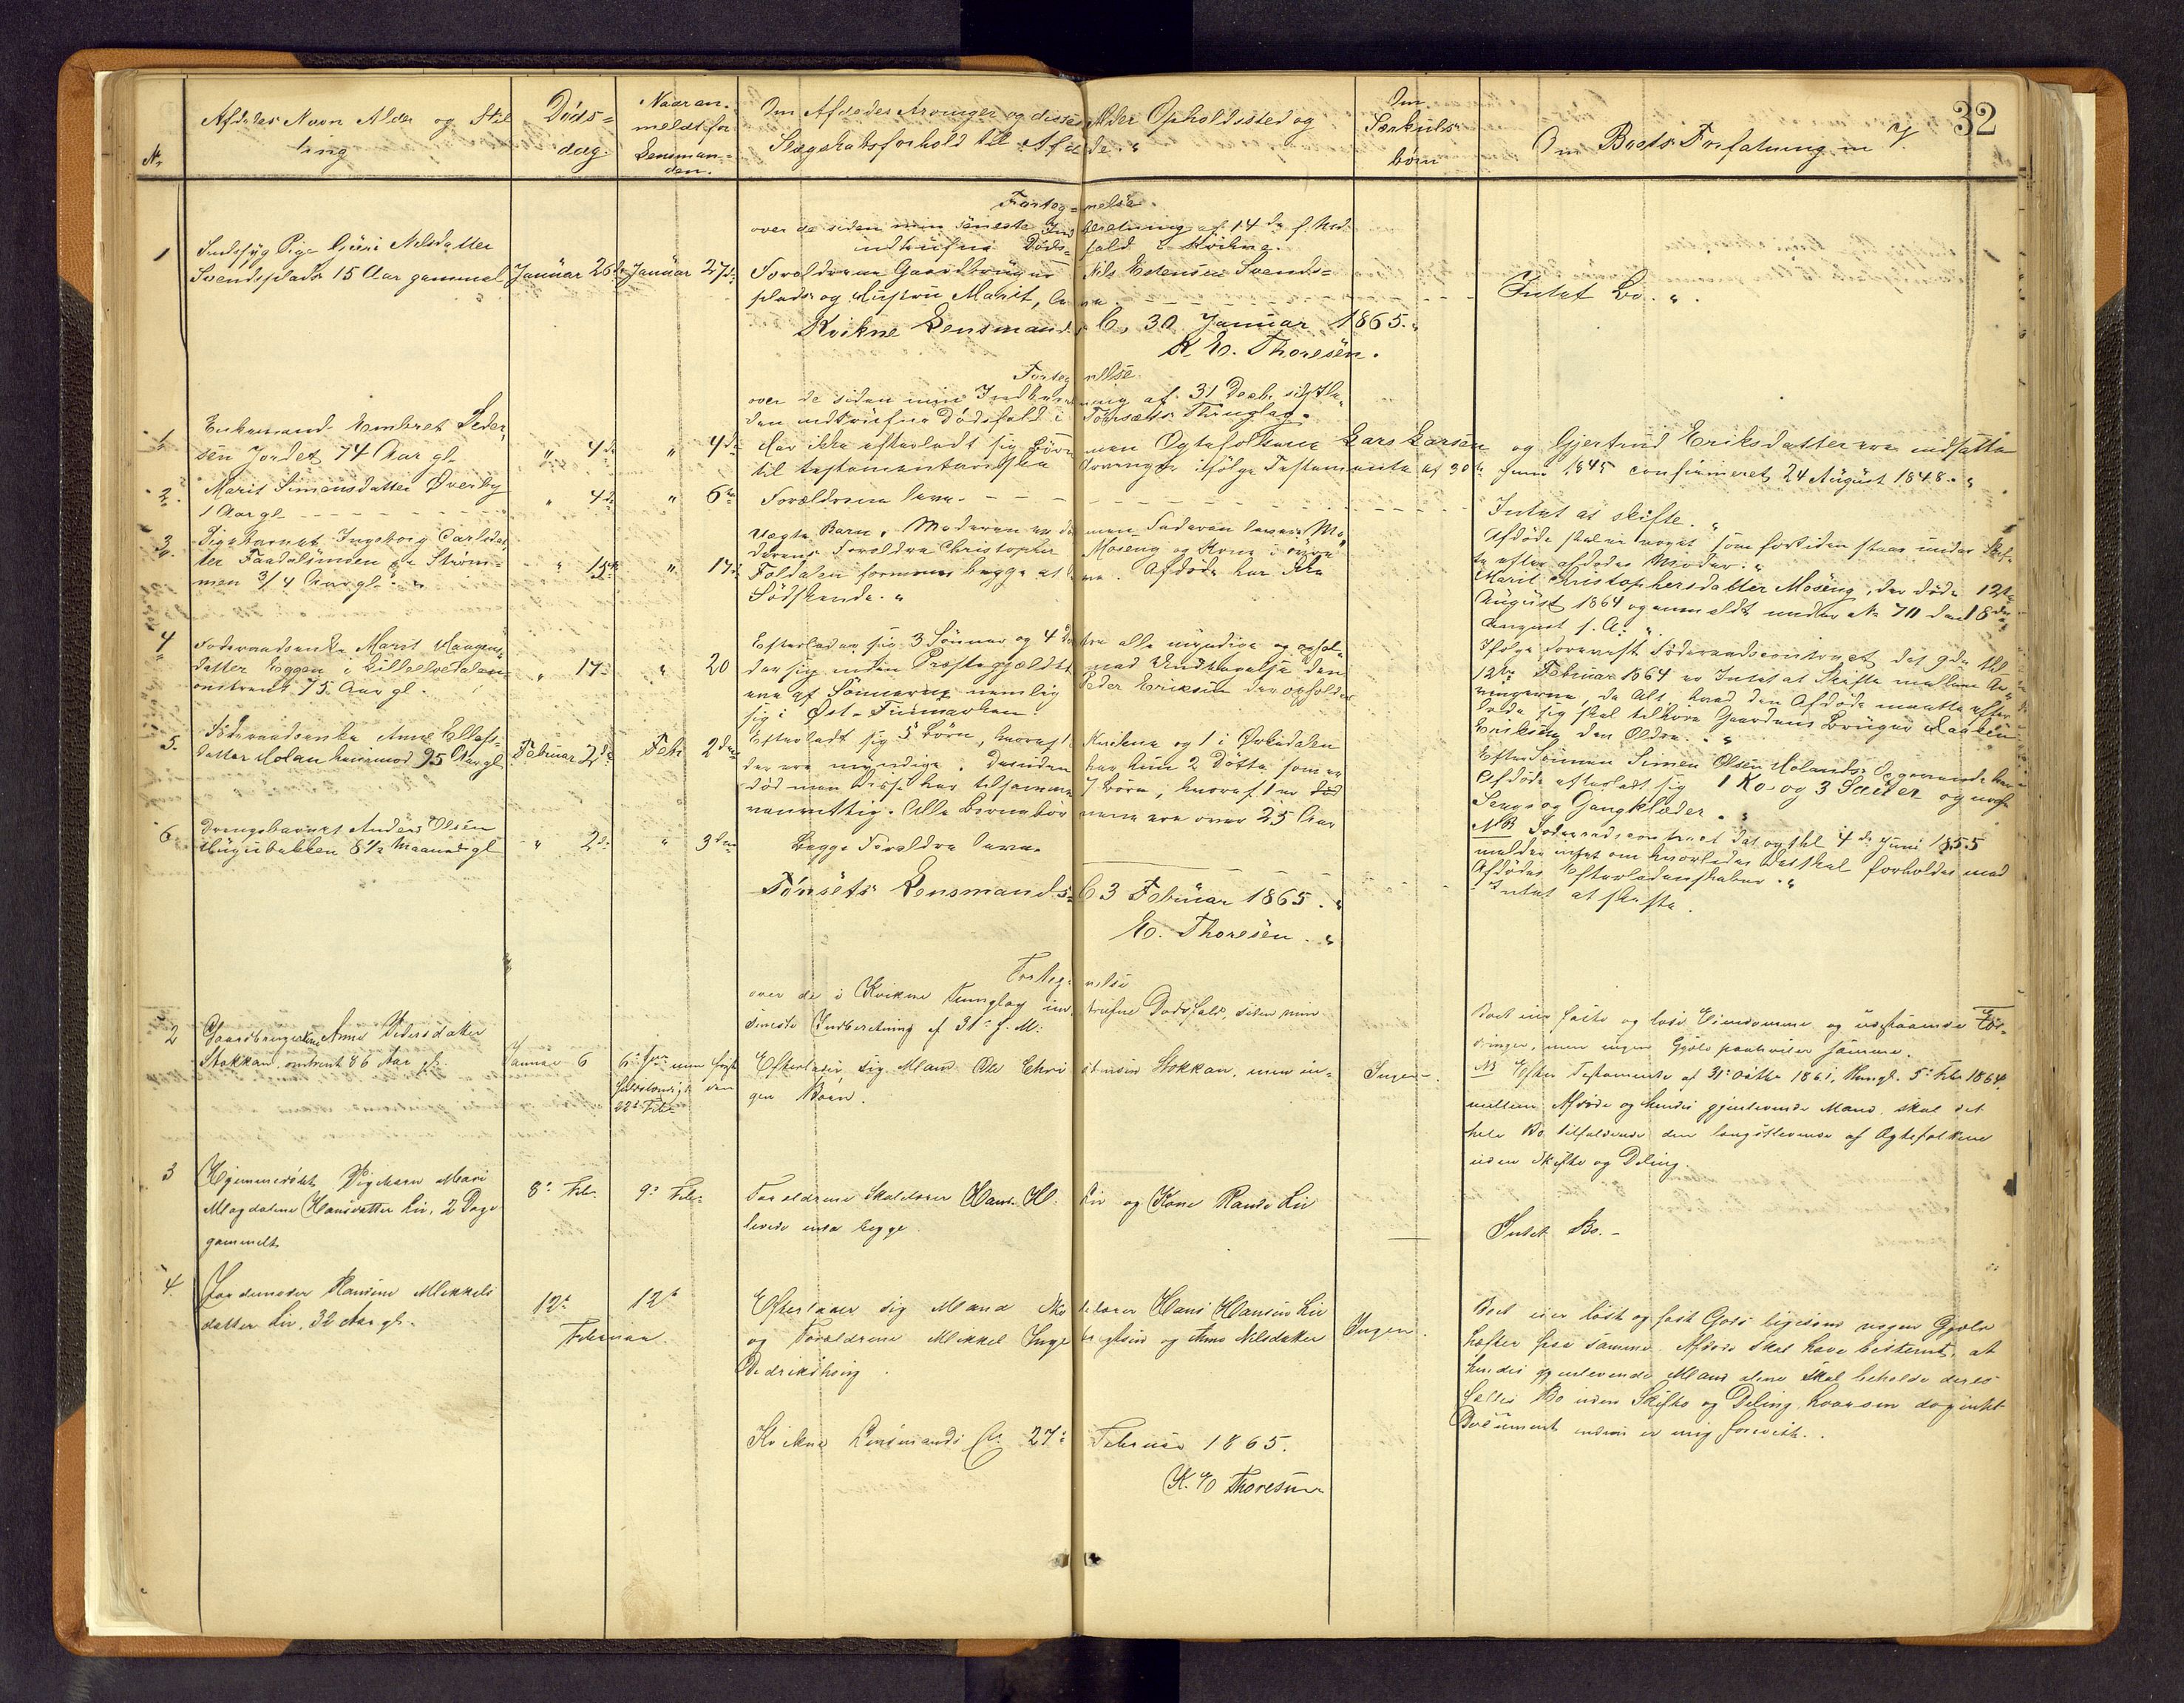 32
No
Afdødes Navn Alder og Stil-
ling
Døds-
dag.
Naar an-
meldt for
Lensman-
den.
Om Afdødes Arvinger og disses Alder Opholdssted og
Slægtskabsforhold til Afdøde. "
Om
Særkuls
børn
Om Boets Forfatning m V.
Forteg-nelse.
over de siden min seneste Indberetning af 14de f. Md.
indtrufne Døds-fald i Kvikne.
1
Sindssyg Pige Guri Nilsdatter
Svendsplads 15 Aar gammel
Januar 26de
Januar 27de
Forældrene Gaardbruger Nils Estensen Svends-
plads og Hustru Marit,
Intet Bo. "
Kvikne Lensmands C. 30 Januar 1865. "
K E. Thoresen.
Forteg-nelse
over de siden min Indberetning af 31 Decbr. sidstle-
den indtrufne Dødsfald i Tønsæts Thinglag.
1
Enkemand Embret Peder-
sen Jordet 74 Aar gl
" 4de
" 4de
Har ikke efterladt sig Børn men Ægtefolkene Lars Larsen og Gjertrud Eriksdatter ere indsatte
til testamentariske Arvinger ifølge Testamente af 30te Juni 1845 confirmeret 24 August 1848. "
2.
Marit Simensdatter Øverby
1 Aar gl
" 4de
" 6te
Forældrene leve.
Intet at skifte. "
3
Pigebarnet Ingeborg Carlsdat-
ter Faadalsmoen Strøm-
men 3/4 Aar gl. "
" 15de
" 17de
Uægte Barn. Moderen er død men Faderen lever. Mo-
derens Forældre Christopher Moseng og Kone i øvre
Foldalen formenes begge at leve. Afdøde har ikke
Sødskende. "
Afdøde skal eie noget som fortiden staar under Skif-
te efter afdødes Moder. "
Marit Christophersdatter Moseng, der døde 12te
August 1864 og anmeldt under No 70 den 18de
August s. A. "
4
Føderaadsenke Marit Haagens-
datter Eggen i Lilleelvedalen
omtrent 75 Aar gl.
" 17de
" 20
Efterlader sig 3 Sønner og 4 Døtre alle myndige og ophol-
der sig inden Præstegjældet med Undtagelse den
ene af Sønnerne nemlig Peder Eriksen der opholder
sig i Øst-Finmarken.
Ifølge Føderaadscontract dat 9de thl
12te Februar 1864 er Intet at Skifte mellem Ar-
vingerne, da Alt, hvad den Afdøde maatte efter-
lade sig skal tilhøre Gaardens Bruger Haaken
Eriksen den Ældre. "
5.
Føderaadsenke Anne Ellefs-
datter Moian henimod 95 Aar gl
Februar 2de
Febr 2den
Efterladt sig 5 Børn, hvoraf Kvikne og 1 i Ørkedalen
der ere myndige. Desuden har hun 2 Døttre som er
død men disse har tilsammen 7 Børn, hvoraf 1 er død
vanvittig. Alle Børnebørnene ere over 25 Aar
Efter Sønnen Simen Olsen Molands Opgivende har
Afdøde efterladt sig 1 Ko og 3 Sauer og nogle
Senge og Gangklæder. "
NB Føderaadscontract dat og thl 4de Juni 1855
melder intet om hvorledes det skal forholdes med
Afdødes Efterladenskaber. "
6
Drengebarnet Anders Olsen
Haugebakken 8 1/2 Maaned gl
" 2de
" 3den
Begge Forældre leve.
Intet at skifte.
Tønsets Lensmands C 3 Februar 1865. "
E. Thoresen. "
Forteg-nelse
over de i Kvikne Thinglag ind-trufne Dødsfald, siden min
seneste Indberetning af 31te f. M.
2
Gaardbrugerkone Anne Pedersdatter
Stokkan, omtrent 86 Aar gl.
Januar 6
6te Jan men først
fuldstændig den
22de Febr
Efterlader sig Mand Ole Christensen Stokkan, men in-
gen Børn.
Ingen.
Boet eier faste og løse Eiendomme og udestaaende For-
dringer, men ingen Gjæld paahviler samme.
NB Efter Testamente af 31te Octbr 1861, thingl. 5te Febr 1864
mellem Afdøde og hendes gjenlevende Mand, skal det
hele Bo tilfaldende den længstlevende af Ægtefolkene
uden Skifte og Deling.
3
Hjemmedøbt Pigebarn Mari
Magdalene Hansdatter Lie, 2 Dage
gammelt
8de Febr.
9de Febr
Forældrene Skoleholder Hans H. Lie og Kone Randi Lie
levede endnu begge
Intet Bo. -
4.
Jordemoder Randine Mikkels
datter Lie, 32 Aar gl.
12te
12te
Februar
Efterlader sig Mand Skoleholder Hans Hansen Lie
og Forældrene Mikkel Ingebrigtsen og Anne Nilsdatter
Vedrikshaug.
Ingen.
Boet eier løst og fast Gods ligesom nogen Gjæld
hefter paa samme. Afdøde skal have bestemt, at
hendes gjenlevende Mand alene skal beholde deres
fælles Bo uden Skifte og Deling, hvorom dog intet
Document endnu er mig forevist.
Kvikne Lensmands C. 27de Februar 1865.
K. E Thoresen